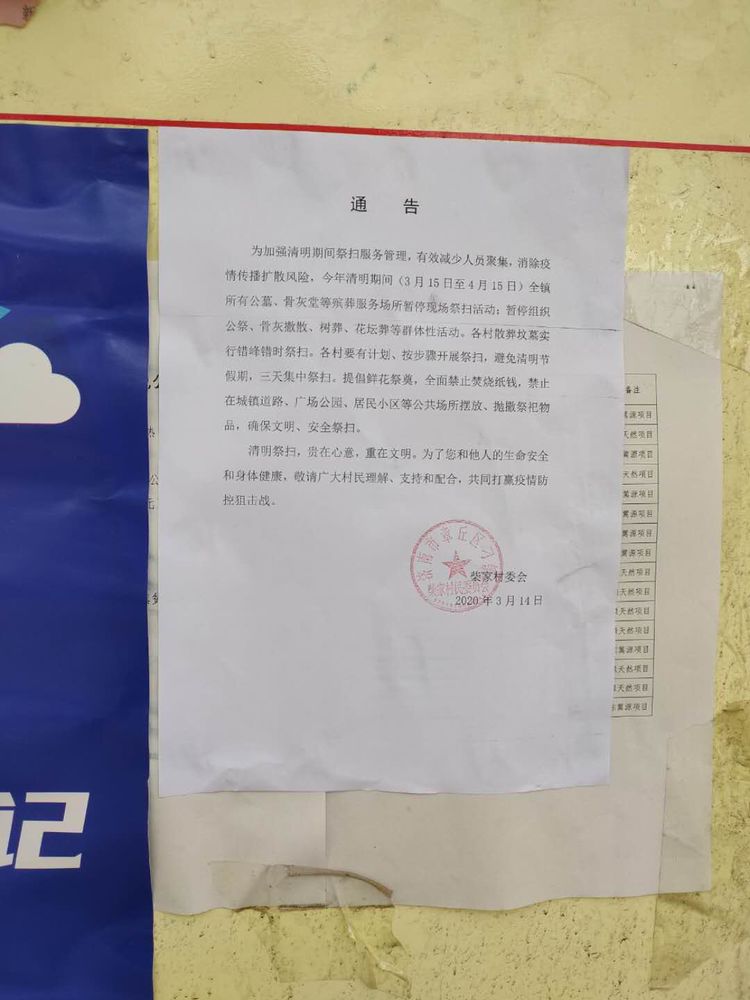 通 告
为加强清明期间祭扫服务管理，有效减少人员聚集，消除疫
情传播扩散风险，今年清明期间（3月15日至4月15日）全镇
所有公墓、骨灰堂等殡葬服务场所暂停现场祭扫活动；暂停组织
公祭、骨灰撒散、树葬、花坛葬等群体性活动。各村散葬坟墓实
行错峰错时祭扫。各村要有计划、按步骤开展祭扫，避免清明节
假期，三天集中祭扫。提倡鲜花祭奠，全面禁止焚烧纸钱，禁止
在城镇道路、广场公园、居民小区等公共场所摆放、抛撒祭祀物
品，确保文明、安全祭扫。
清明祭扫，贵在心意，重在文明。为了您和他人的生命安全
和身体健康，敬请广大村民理解、支持和配合，共同打赢疫情防
控狙击战。
济南市章丘区刁镇
柴家村民委员会
柴家村委会
2020年3月14日
备注
源项目
天然项目
源项目
天然项目
源项目
源项目
源项目
源项目
天然项目
天然项目
天然项目
天然项目
源项目
天然项目
天然项目
源项目
记